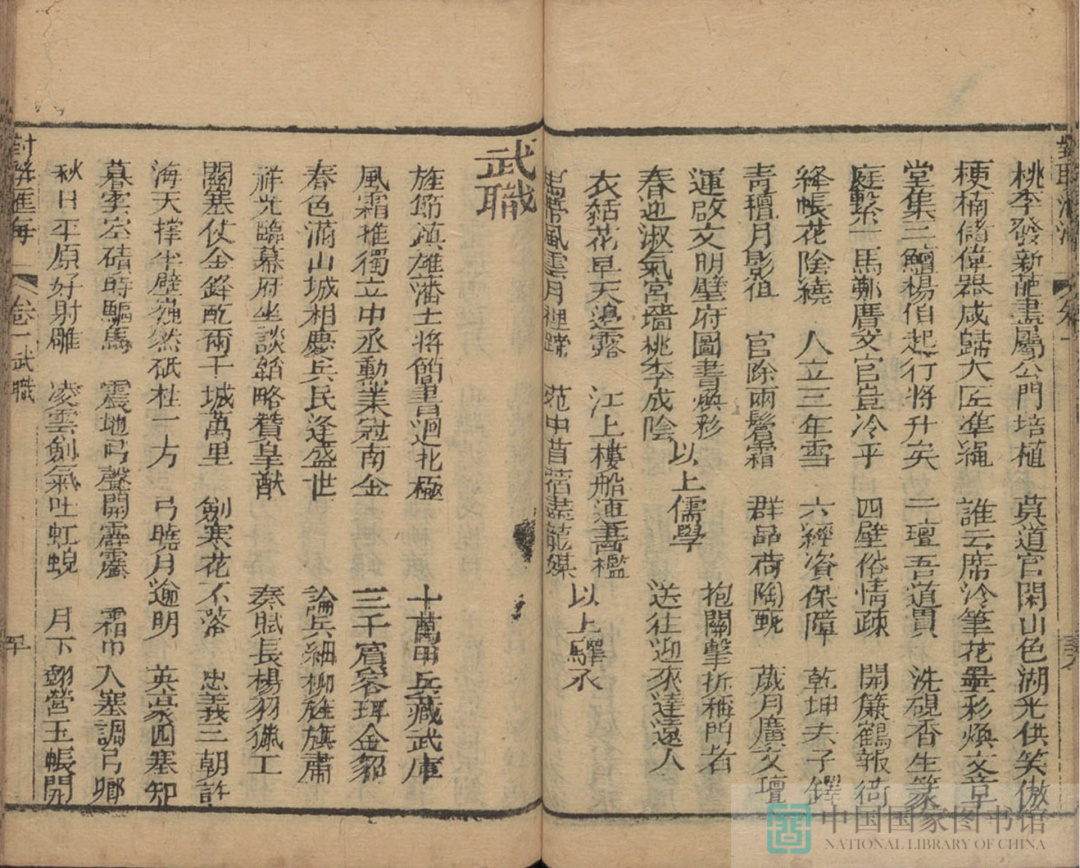 桃李發新葩盡屬公門培植　莫道官閑山色湖光供笑傲
梗楠儲偉器咸歸大匠準繩　誰云席冷筆花墨彩煥文章
堂集三鱣楊伯起行將升矣　一壇吾道貫　洗硯香生篆
庭繫一馬鄭廣文官豈冷乎　四壁俗情疎　開簾鶴報衙
絳帳花陰繞　人立三年雪　六經資保障　乾坤夫子鐸
青壇月影徂　官除兩鬢霜　群品荷陶甄　歲月廣文壇
運啟文明壁府圖書煥彩　抱關擊柝稱門者
春迎淑氣宮墻桃李成陰　以上儒學　送往迎來達遠人
衣銛花早天邊露　江上樓船連畵檻
風雲月裡　苑中苜蓿盡龍媒　以上驛丞
武職
旌節蹟雄藩士將簡書迴北極　十萬甲兵藏武庫
風霜推獨立中丞勳業冠南金　三千賓客珥金貂
春色滿山城相慶兵民逢盛世　論兵細柳旌旗肅
祥光臨幕府坐談韜略贊皇猷　奏賦長楊羽獵工
關塞仗金鋒配兩千城萬里　劍寒花不落　忠義三朝許
海天撐半壁巍然砥柱一方　弓曉月逾明　英豪四塞知
暮雲空磧時驅馬　震地弓聲開霹靂　霜巾入塞調弓
秋日平原好射雕　凌雲劍氣吐虹蜺　月下翻營玉帳開
卷一武職